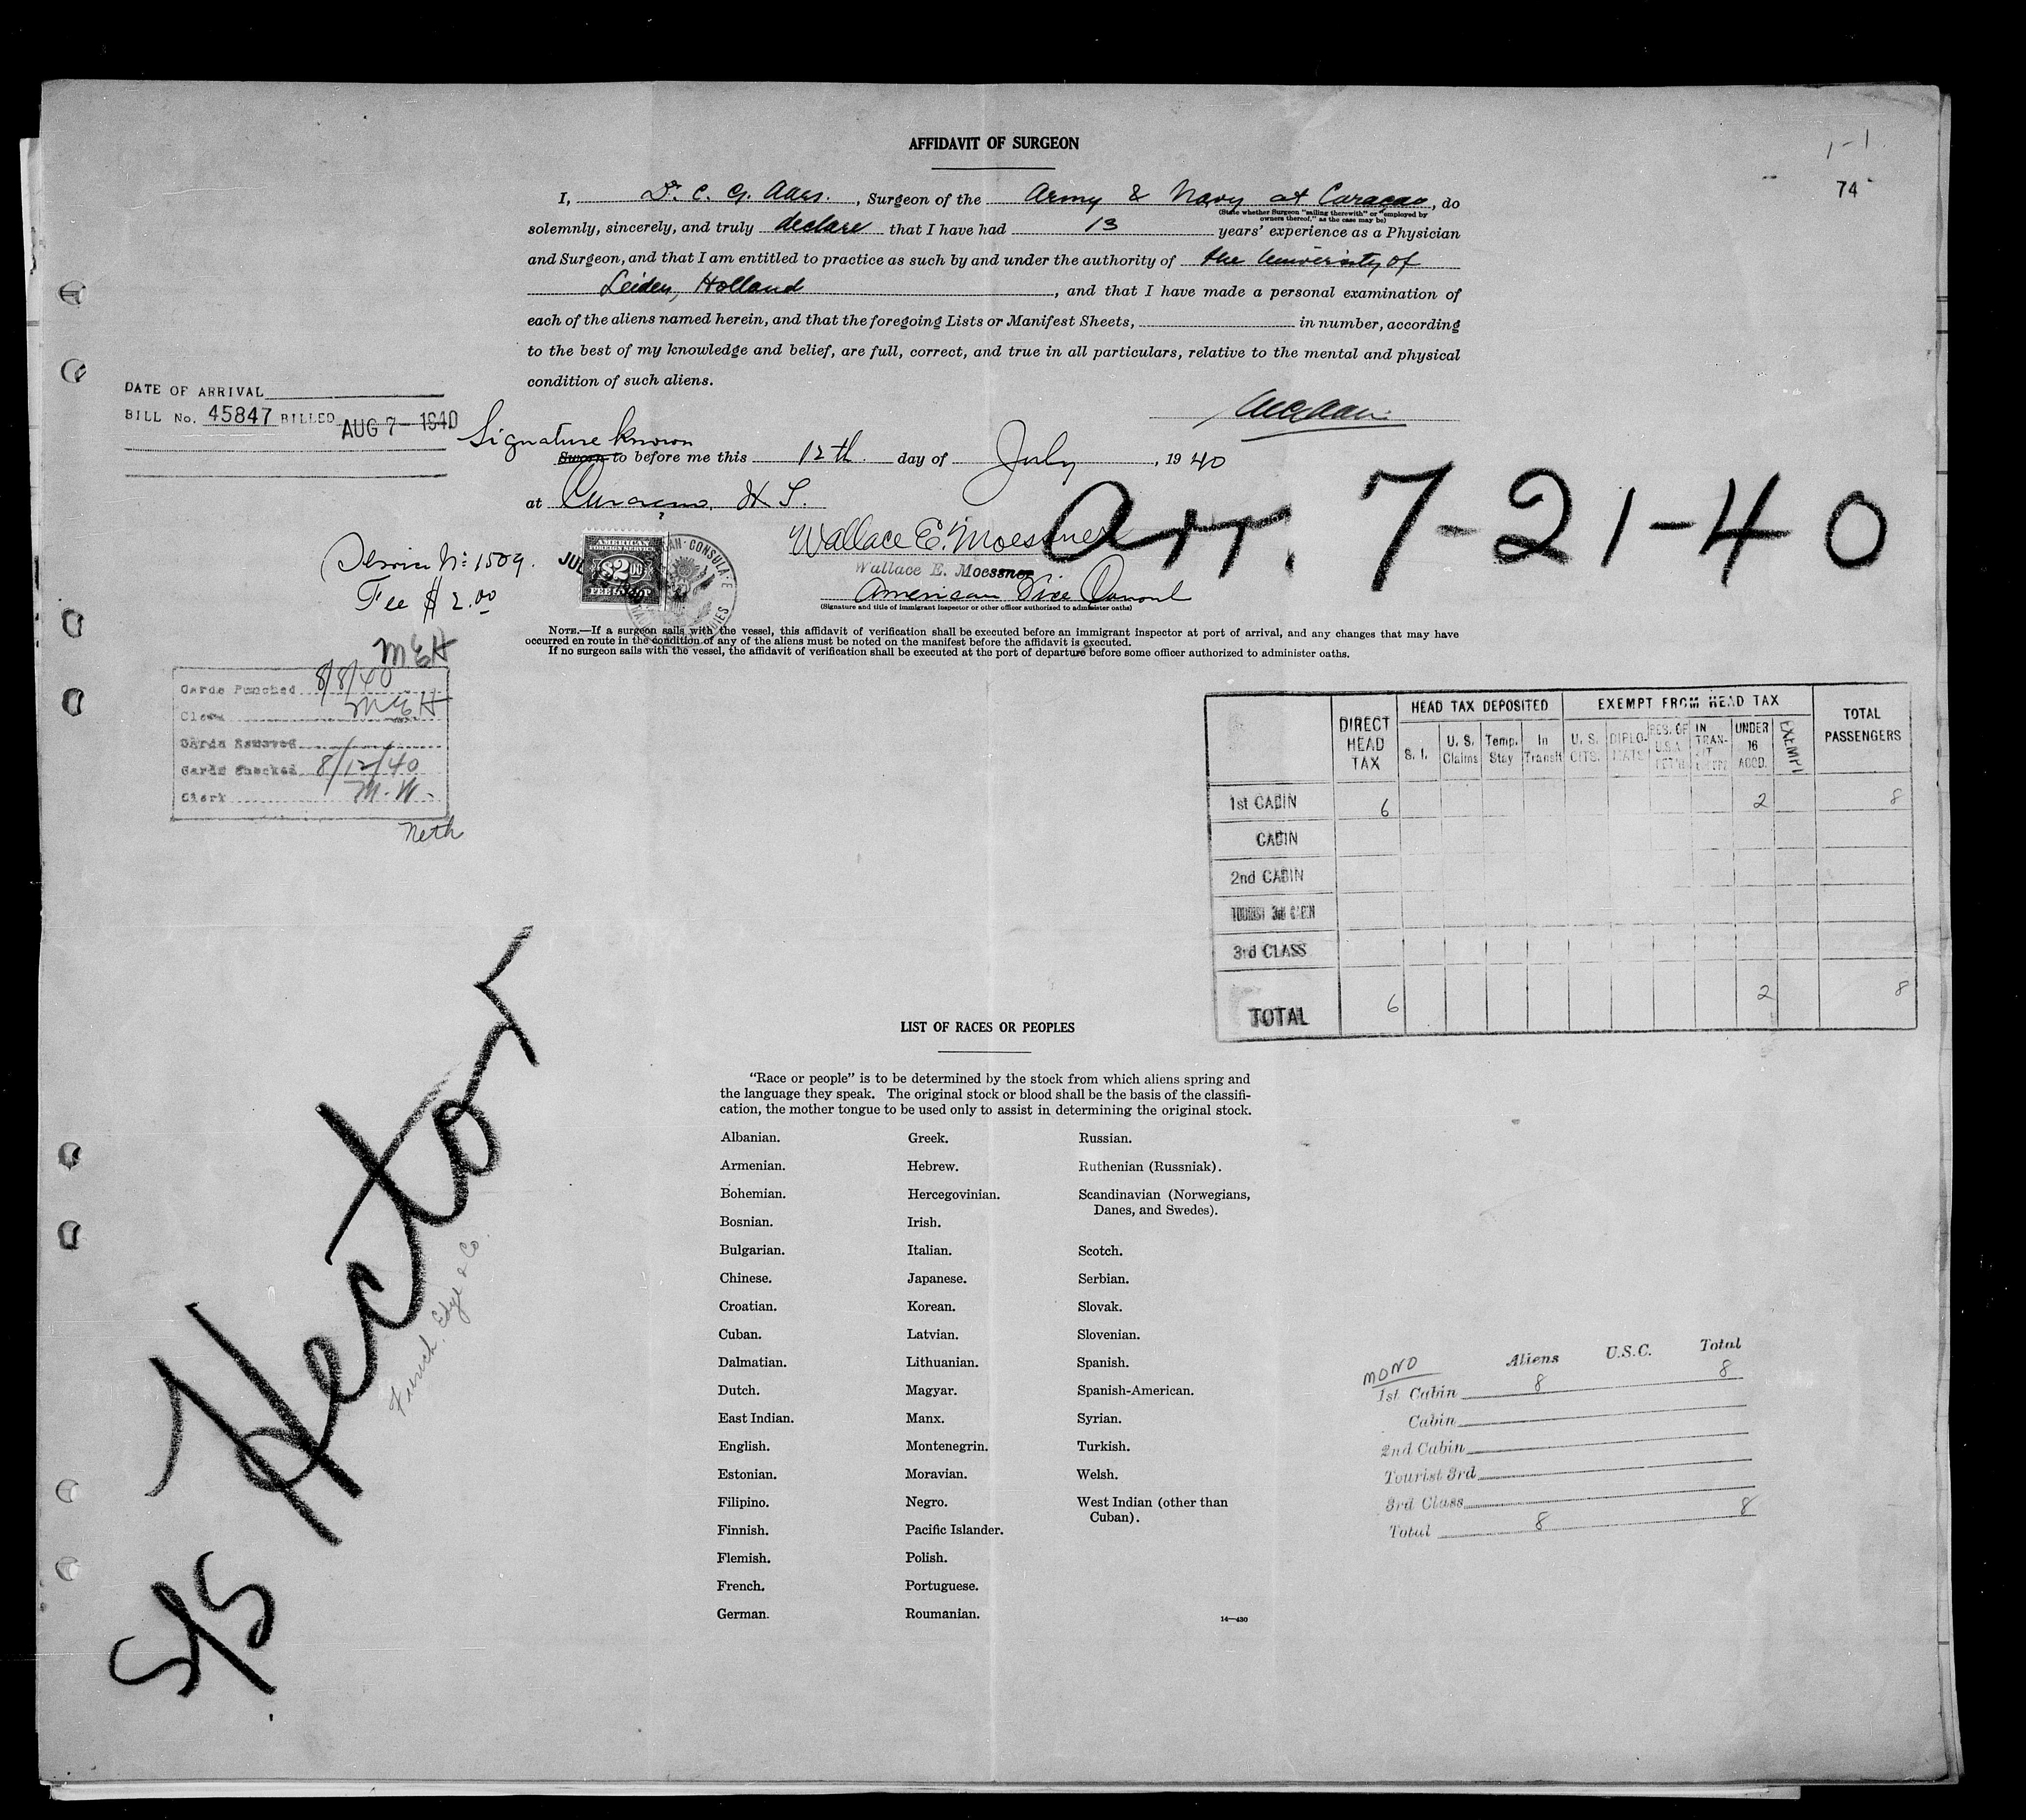 AFFIDAVIT OF SURGEON
1-1
74
I, Dr. C. G. Aars., Surgeon of the Army & Navy at Curaçao, do
(State whether Surgeon "sailing therewith" or "employed by
owners thereof," as the case may be)
solemnly, sincerely, and truly declare that I have had 13 years' experience as a Physician
and Surgeon, and that I am entitled to practice as such by and under the authority of the University of
Leiden, Holland, and that I have made a personal examination of
each of the aliens named herein, and that the foregoing Lists or Manifest Sheets, in number, according
to the best of my knowledge and belief, are full, correct, and true in all particulars, relative to the mental and physical
condition of such aliens.
DATE OF ARRIVAL
BILL No. 45847 BILLED AUG 7 - 1940
Signature known
Sworn to before me this 12th day of July, 1940
at Curacao, N.
Arr. 7-21-40
Wallace E. Moessner
Wallace E. Moessner
American Vice Consul
(Signature and title of immigrant inspector or other officer authorized to administer oaths)
Service No: 1509.
Fee $ 2.00
JUL
AMERICAN
FOREIGN SERVICE
$2.00
FEE STAMP
CONSULATE
NOTE.—If a surgeon sails with the vessel, this affidavit of verification shall be executed before an immigrant inspector at port of arrival, and any changes that may have
occurred en route in the condition of any of the aliens must be noted on the manifest before the affidavit is executed.
If no surgeon sails with the vessel, the affidavit of verification shall be executed at the port of departure before some officer authorized to administer oaths.
MEH
Cards Punched 8/8/40
Clerk MEH
Cards Removed
Cards Checked 8/12/40
Clerk M.W.
Neth
DIRECT HEAD TAX
HEAD TAX DEPOSITED
EXEMPT FROM HEAD TAX
TOTAL PASSENGERS
S. I. U. S. Claims Temp. Stay In Transit U. S. CITS. DIPLO-MATS RES. OF U.S.A. IN TRAN-SIT UNDER 16 ACCD. EXEMPT
1st CABIN 6 2 8
CABIN
2nd CABIN
TOURIST 3rd CABIN
3rd CLASS
TOTAL 6 2 8
S/S Hector
Funch, Edye & Co.
LIST OF RACES OR PEOPLES
"Race or people" is to be determined by the stock from which aliens spring and
the language they speak. The original stock or blood shall be the basis of the classifi-
cation, the mother tongue to be used only to assist in determining the original stock.
Albanian.
Armenian.
Bohemian.
Bosnian.
Bulgarian.
Chinese.
Croatian.
Cuban.
Dalmatian.
Dutch.
East Indian.
English.
Estonian.
Filipino.
Finnish.
Flemish.
French.
German.
Greek.
Hebrew.
Hercegovinian.
Irish.
Italian.
Japanese.
Korean.
Latvian.
Lithuanian.
Magyar.
Manx.
Montenegrin.
Moravian.
Negro.
Pacific Islander.
Polish.
Portuguese.
Roumanian.
Russian.
Ruthenian (Russniak).
Scandinavian (Norwegians,
Danes, and Swedes).
Scotch.
Serbian.
Slovak.
Slovenian.
Spanish.
Spanish-American.
Syrian.
Turkish.
Welsh.
West Indian (other than
Cuban).
14—430
MONO Aliens U.S.C. Total
1st Cabin 8 8
Cabin
2nd Cabin
Tourist 3rd
3rd Class
Total 8 8